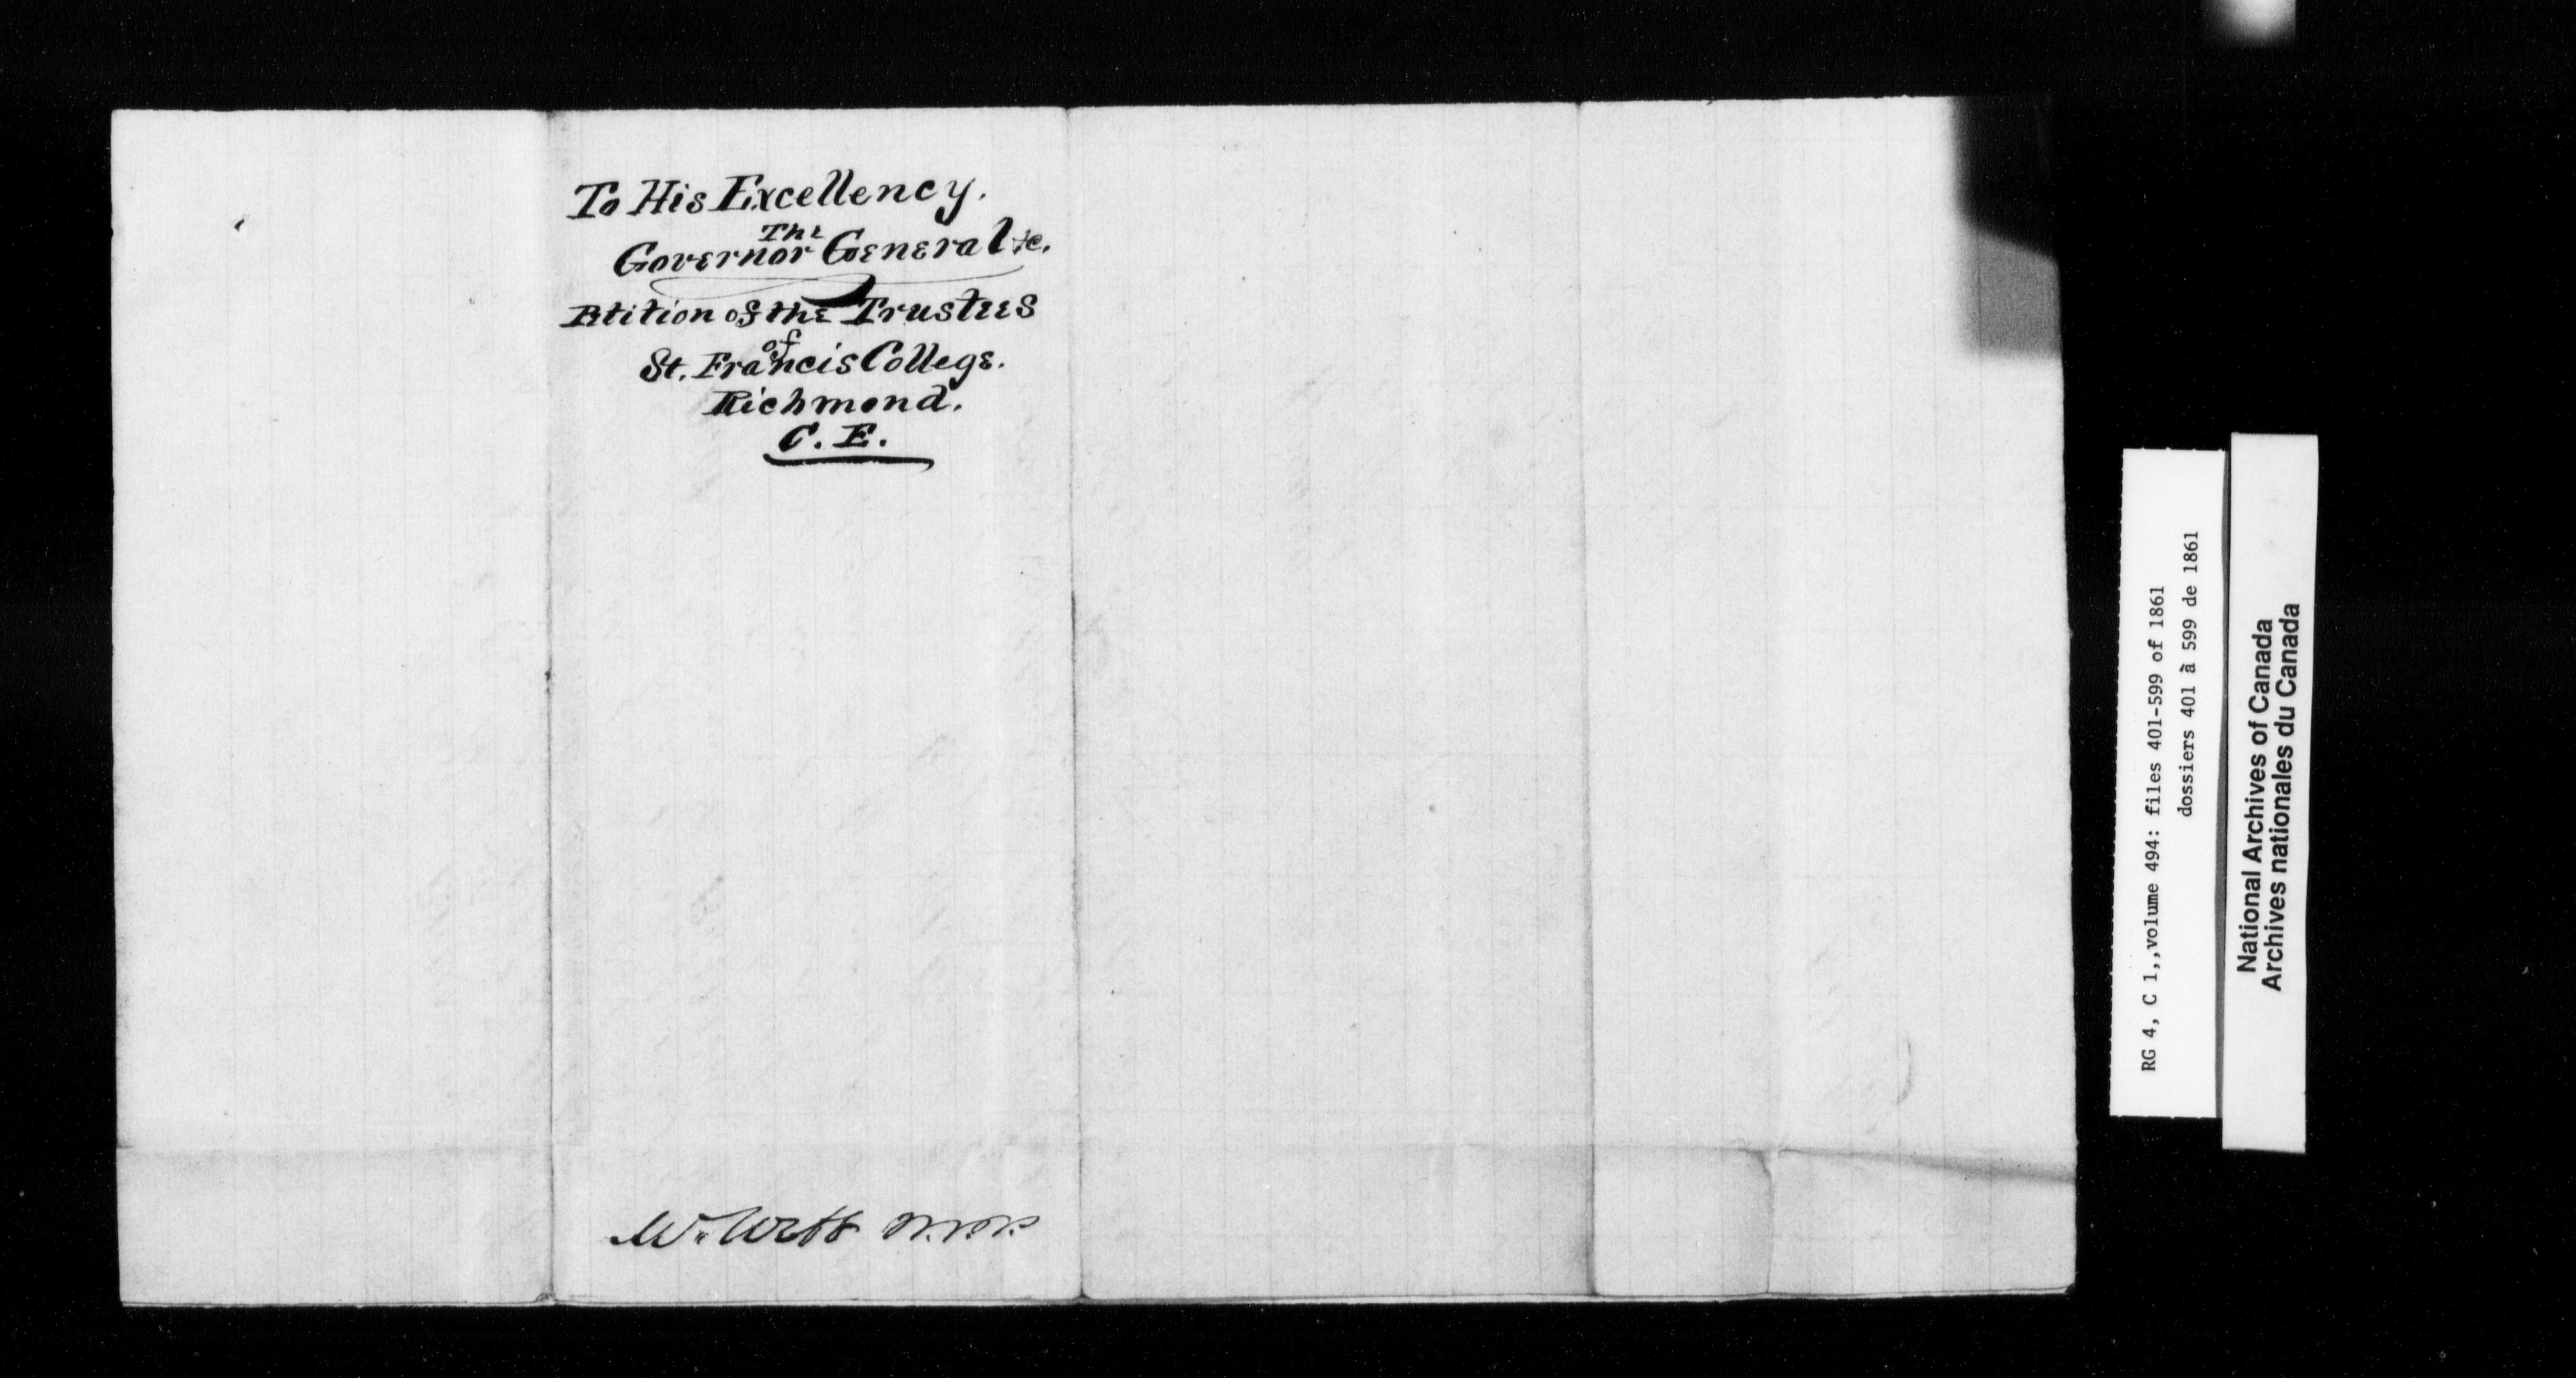 To His Excellency.
The
Governor General &c.
Petition of the Trustees
of
St. Francis College.
Richmond.
C. E.
Wm Webb M.P.P.
RG 4, C 1,,volume 494: files 401-599 of 1861
dossiers 401 à 599 de 1861
National Archives of Canada
Archives nationales du Canada